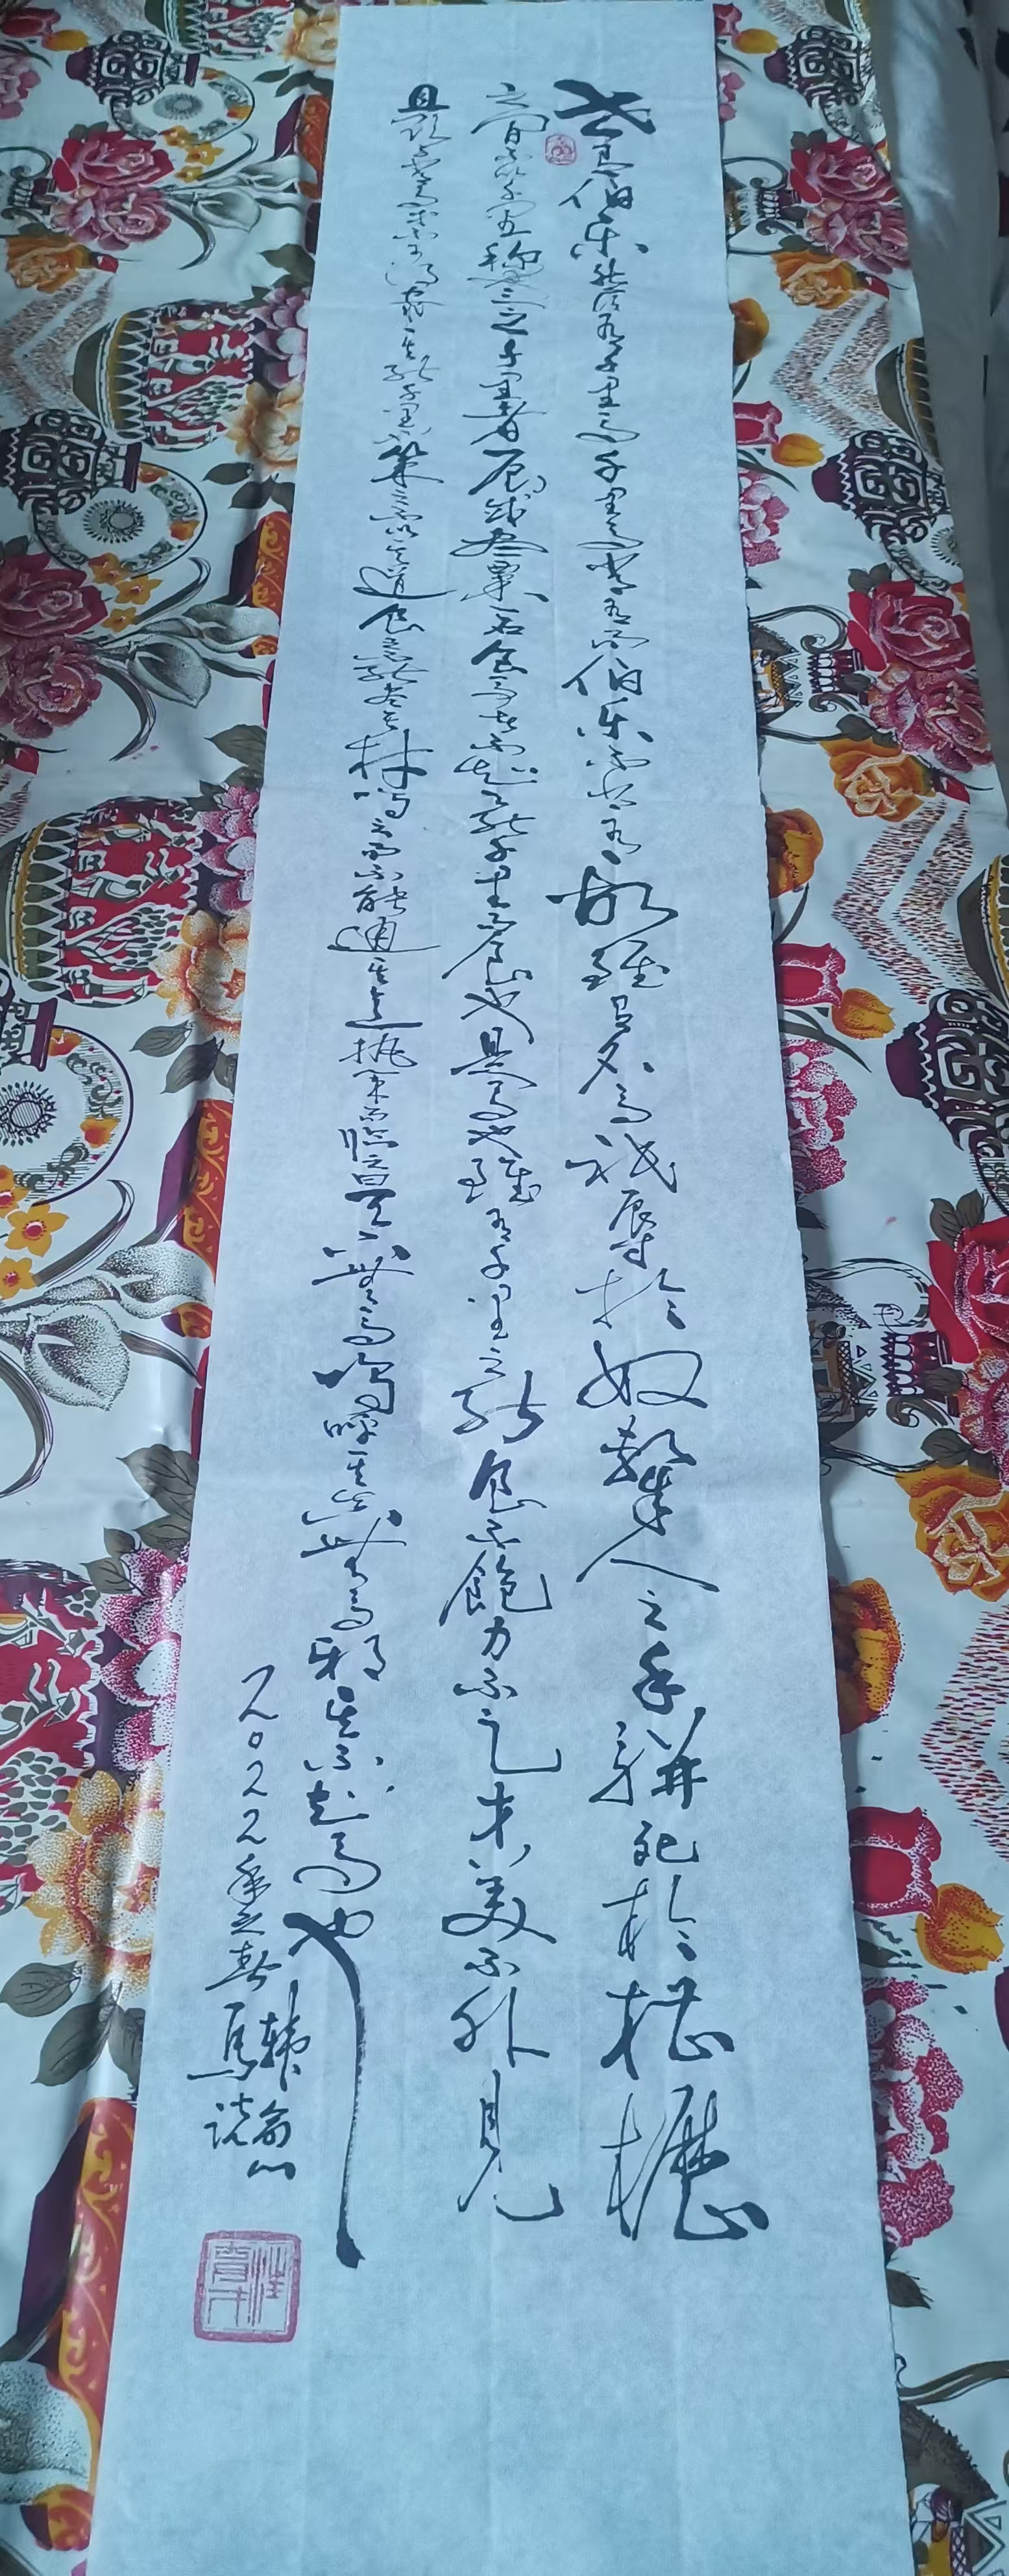 世有伯乐然后有千里马千里马常有而伯乐不常有故雖有名马祇辱於奴隸人之手骈死於槽櫪
之间不以千里称也马之千里者一食或尽粟一石食马者不知其能千里而食也是马也雖有千里之能食不飽力不足才美不外見
且欲与常马等不可得安求其能千里也策之不以其道食之不能尽其材鸣之而不能通其意执策而临之曰天下無马呜呼其真無马邪其真不知马也
2022年之春
韩愈
馬说